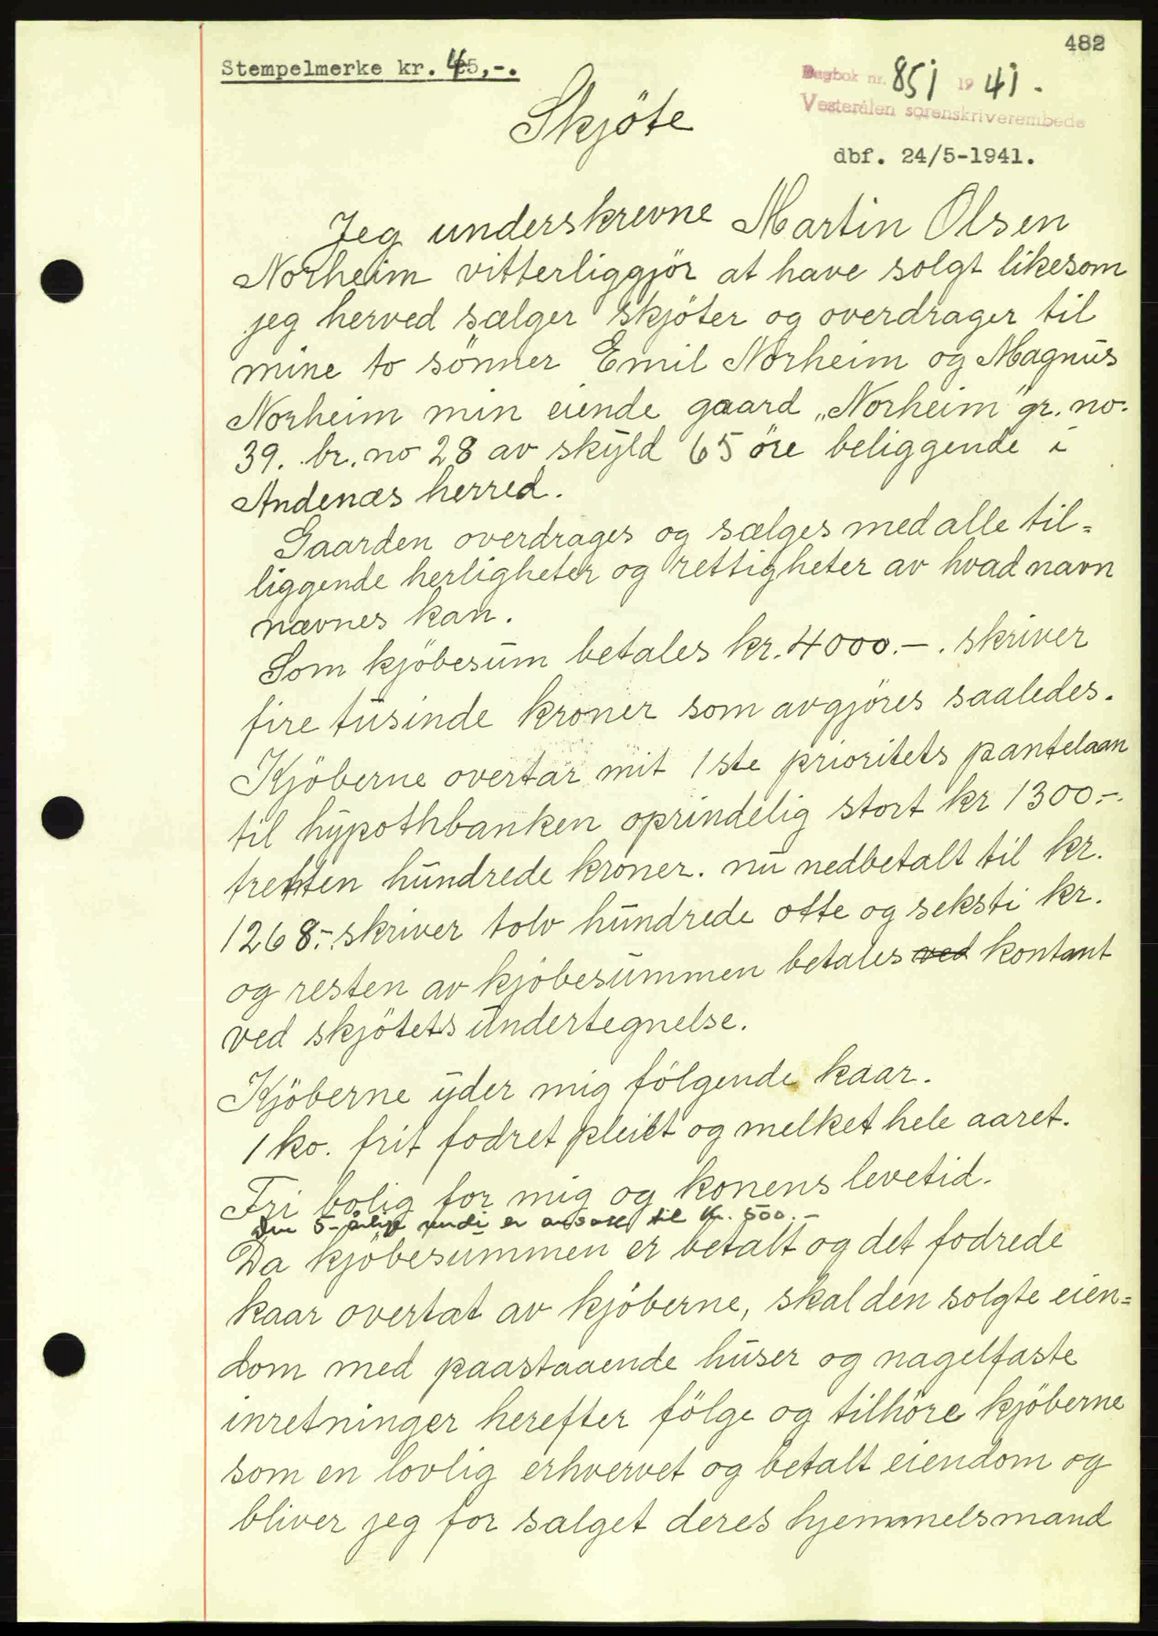 482
Stempelmerke kr. 45,-.
Dagbok nr. 851 1941.
Vesterålen sorenskriverembede
Skjöte
dbf. 24/5-1941.
Jeg underskrevne Martin Olsen
Norheim vitterliggjör at have solgt likesom
jeg herved sælger skjöter og overdrager til
mine to sönner Emil Norheim og Magnus
Norheim min eiende gaard „Norheim" gr. no.
39. br. no 28 av skyld 65 öre beliggende i
Andenæs herred.
Gaarden overdrages og sælges med alle til=
liggende herligheter og rettigheter av hvad navn
nævnes kan.
Som kjöbesum betales kr. 4000.-. skriver
fire tusinde kroner som avgjöres saaledes.
Kjöberne overtar mit 1ste prioritets pantelaan
til hypothbanken oprindelig stort kr 1300.-.
tretten hundrede kroner. nu nedbetalt til kr.
1268.-. skriver tolv hundrede otte og seksti kr.
og resten av kjöbesummen betales ved kontant
ved skjötets undertegnelse.
Kjöberne yder mig fölgende kaar.
1 ko. frit fodret pleiet og melket hele aaret.
Fri bolig for mig og konens levetid.
Den 5-årlige verdi er ansatt til kr. 500.-
Da kjöbesummen er betalt og det fodrede
kaar overtat av kjöberne, skal den solgte eien=
dom med paastaaende huser og nagelfaste
inretninger herefter fölge og tilhöre kjöberne
som en lovlig erhvervet og betalt eiendom og
bliver jeg for salget deres hjemmelsmand